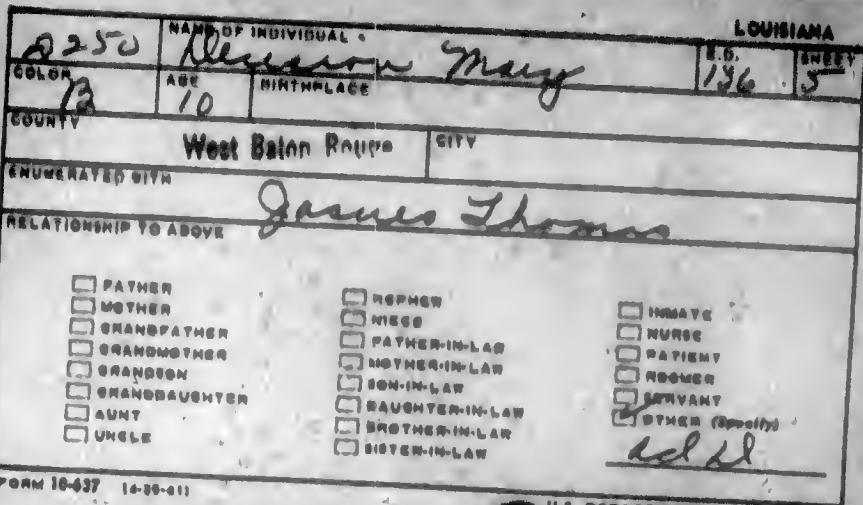 LOUISIANA
NAME OF INDIVIDUAL
E.D.
SHEET
Mary
136
5
COLOR
B
AGE
10
BIRTHPLACE
COUNTY
West Baton Rouge
CITY
ENUMERATED WITH
Thomas
RELATIONSHIP TO ABOVE
FATHER
MOTHER
GRANDFATHER
GRANDMOTHER
GRANDSON
GRANDDAUGHTER
AUNT
UNCLE
NEPHEW
NIECE
FATHER-IN-LAW
MOTHER-IN-LAW
SON-IN-LAW
DAUGHTER-IN-LAW
BROTHER-IN-LAW
SISTER-IN-LAW
INMATE
NURSE
PATIENT
ROOMER
SERVANT
OTHER (Specify)
ad d
FORM 10-637 (4-30-61)